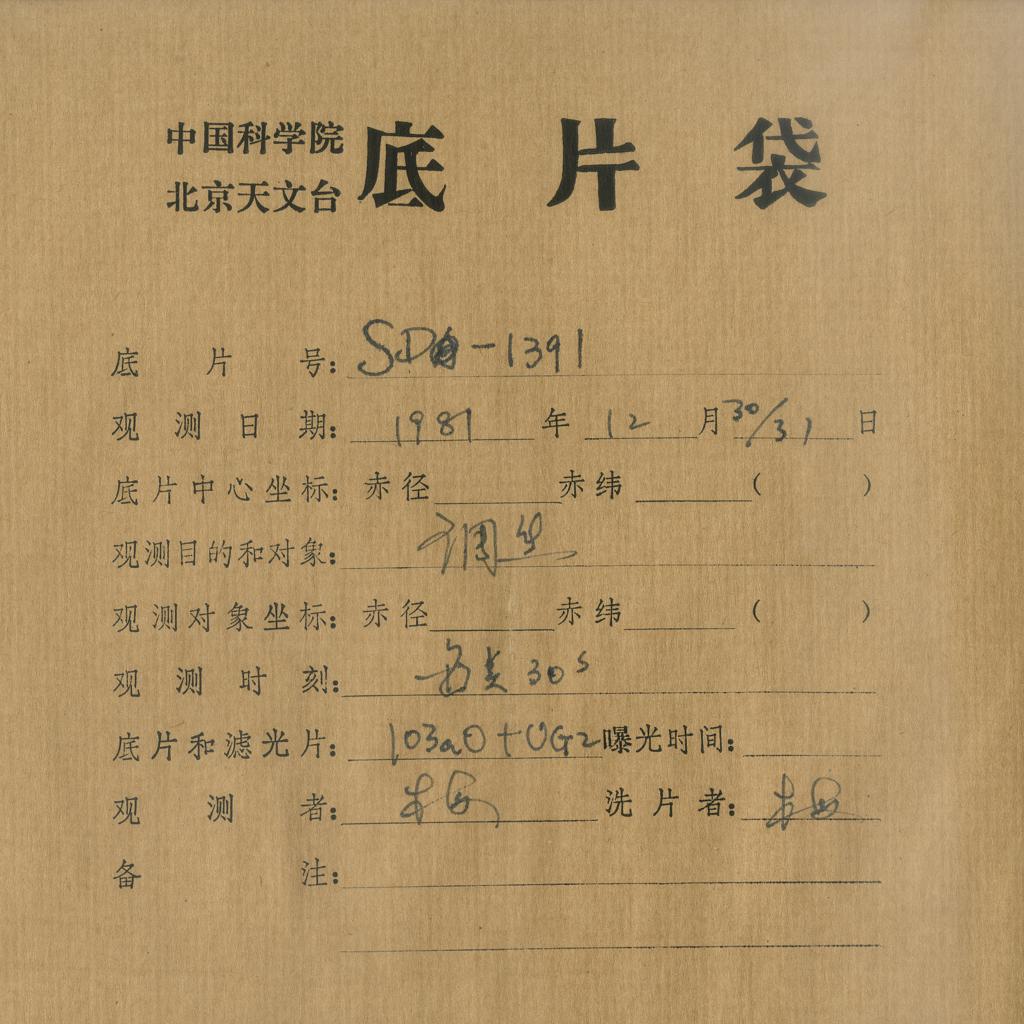 中国科学院
北京天文台
底片袋
底片号：SD-1391
观测日期：1981年12月30/31日
底片中心坐标：赤径 赤纬 （ ）
观测目的和对象：调焦
观测对象坐标：赤径 赤纬 （ ）
观测时刻：30s
底片和滤光片：103aO+UG2 曝光时间：
观测者： 洗片者：
备注：